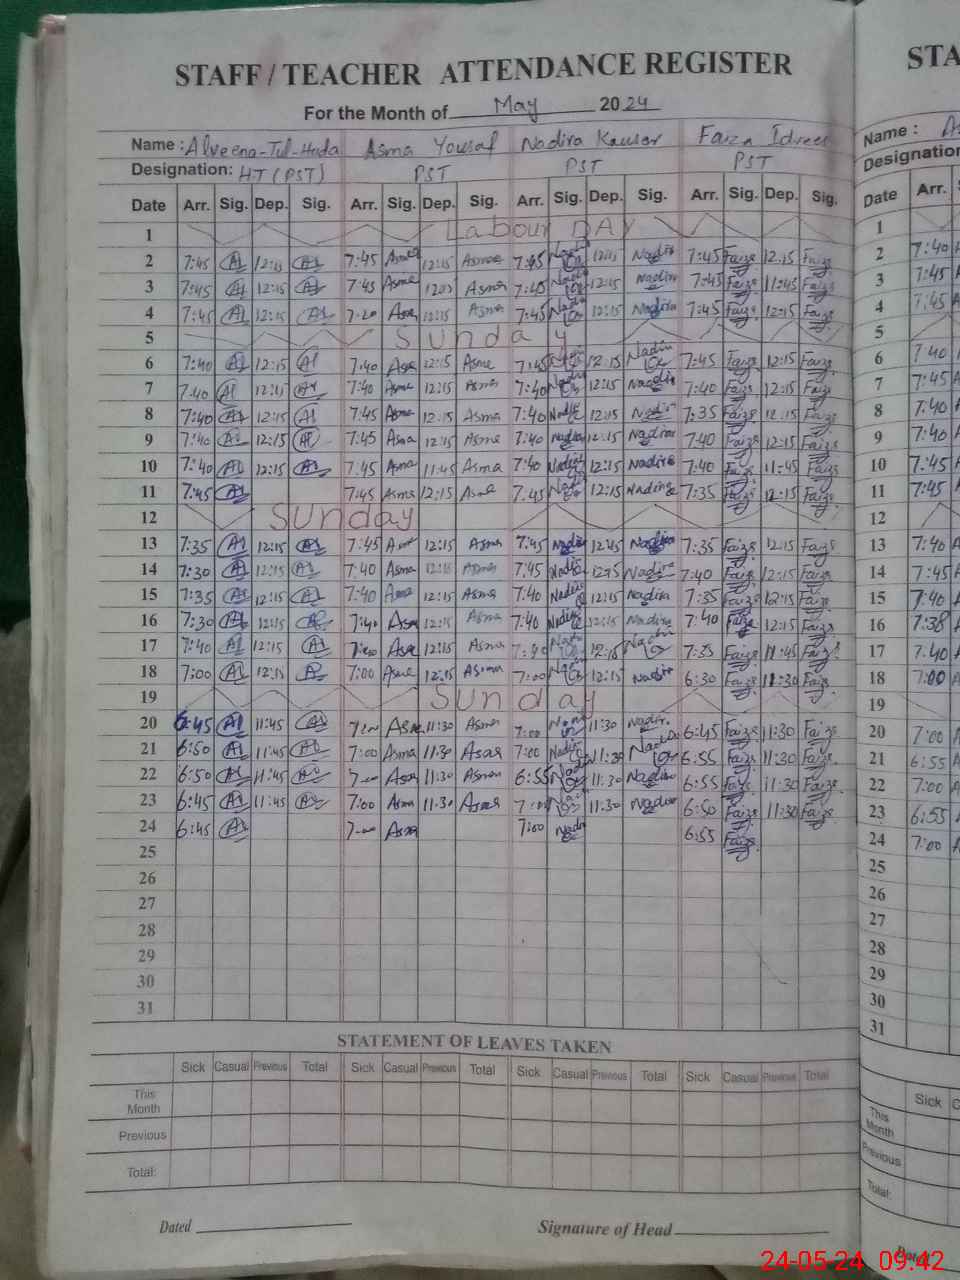 STAFF / TEACHER ATTENDANCE REGISTER STA
For the Month of May 2024
Name : Alveena-Tul-Huda Asma Yousaf Nadira Kausar Faiza Idrees Name :
Designation: HT (PST) PST PST PST Designation
Date Arr. Sig. Dep. Sig. Arr. Sig. Dep. Sig. Arr. Sig. Dep. Sig. Arr. Sig. Dep. Sig. Date Arr.
1 Labour DAY 1
2 7:45 A1 12:15 A1 7:45 Asma 12:15 Asma 7:45 12:15 Nadira 7:45 Faiza 12:15 Faiza 2 7:40
3 7:45 A1 12:15 A1 7:45 Asma Asma 7:40 12:15 Nadira 7:45 Faiza 11:45 Faiza 3 7:45
4 7:45 A1 12:15 A1 Asma 12:15 Asma 7:45 12:15 Nadira 7:45 Faiza 12:15 Faiza 4 7:45
5 Sunday 5
6 7:40 A1 12:15 A1 7:40 Asma 12:15 Asma 7:45 12:15 Nadira 7:45 Faiza 12:15 Faiza 6 7:40
7 7:40 A1 12:15 A1 7:40 Asma 12:15 Asma 7:40 Nadira 12:15 Nadira 7:40 Faiza 12:15 Faiza 7 7:45
8 7:40 A1 12:15 A1 7:45 Asma 12:15 Asma 7:40 Nadira 12:15 Nadira 7:35 Faiza 12:15 Faiza 8 7:40
9 7:40 A1 12:15 A1 7:45 Asma 12:15 Asma 7:40 Nadira 12:15 Nadira 7:40 Faiza 12:15 Faiza 9 7:40
10 7:40 A1 12:15 A1 7:45 Asma 11:45 Asma 7:40 Nadira 12:15 Nadira 7:40 Faiza 11:45 Faiza 10 7:45
11 7:45 A1 7:45 Asma 12:15 Asma 7:45 Nadira 12:15 Nadira 7:35 Faiza 12:15 Faiza 11 7:45
12 Sunday 12
13 7:35 A1 12:15 A1 7:45 Asma 12:15 Asma 7:45 Nadira Nadira 7:35 Faiza 12:15 Faiza 13 7:40
14 7:30 A1 12:15 A1 7:40 Asma 12:15 Asma 7:45 Nadira Nadira 7:40 Faiza 12:15 Faiza 14 7:45
15 7:35 A1 12:15 A1 7:40 Asma 12:15 Asma 7:40 Nadira 12:15 Nadira 7:35 Faiza 12:15 Faiza 15 7:40
16 7:30 A1 12:15 7:40 Asma 12:15 Asma 7:40 Nadira 12:15 Nadira 7:40 Faiza 12:15 Faiza 16 7:38
17 7:40 A1 12:15 A1 Asma 12:15 Asma 7:40 12:15 Nadira 7:35 Faiza 11:45 Faiza 17 7:40
18 7:00 A1 12:15 7:00 Asma 12:15 Asma 7:00 12:15 Nadira 6:30 Faiza 11:30 Faiza 18 7:00
19 Sunday 19
20 6:45 A1 11:45 A1 7:00 Asma 11:30 Asma 7:00 11:30 Nadira 6:45 Faiza 11:30 Faiza 20 7:00
21 6:50 A1 11:45 A1 7:00 Asma 11:30 Asma 7:00 Nadira 11:30 Nadira 6:55 Faiza 11:30 Faiza 21 6:55
22 6:50 A1 11:45 7:00 Asma 11:30 Asma 6:55 11:30 Nadira 6:55 Faiza 11:30 Faiza 22 7:00
23 6:45 A1 11:45 7:00 Asma 11:30 Asma 7:00 11:30 Nadira 6:50 Faiza 11:30 Faiza 23 6:55
24 6:45 A1 7:00 Asma 7:00 Nadira 6:55 Faiza 24 7:00
25 25
26 26
27 27
28 28
29 29
30 30
31 31
STATEMENT OF LEAVES TAKEN
Sick Casual Previous Total Sick Casual Previous Total Sick Casual Previous Total Sick Casual Previous Total Sick
This Month This Month
Previous Previous
Total: Total:
Dated Signature of Head
24-05-24 09:42